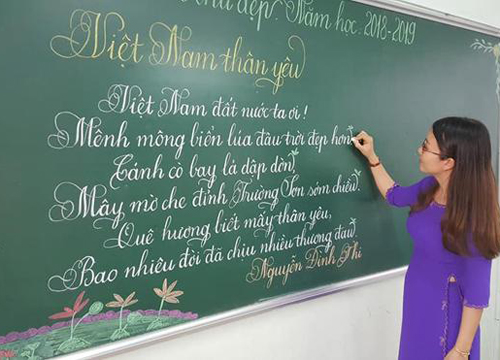 chữ đẹp. Năm học: 2018-2019
Việt Nam thân yêu
Việt Nam đất nước ta ơi!
Mênh mông biển lúa đâu trời đẹp hơn
Cánh cò bay lả dập dờn,
Mây mờ che đỉnh Trường Sơn sớm chiều.
Quê hương biết mấy thân yêu,
Bao nhiêu đời đã chịu nhiều thương đau.
Nguyễn Đình Thi